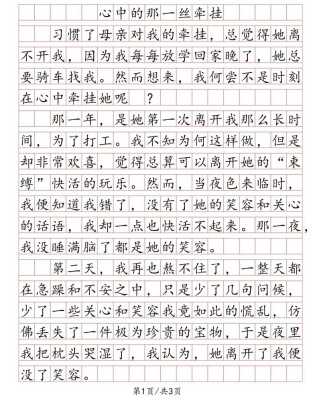 心中的那一丝牵挂
习惯了母亲对我的牵挂，总觉得她离
不开我，因为我每每放学回家晚了，她总
要骑车找我。然而想来，我何尝不是时刻
在心中牵挂她呢 ？
那一年，是她第一次离开我那么长时
间，为了打工。我不知为何这样做，但是
却非常欢喜，觉得总算可以离开她的“束
缚”快活的玩乐。然而，当夜色来临时，
我便知道我错了，没有了她的笑容和关心
的话语，我却一点也快活不起来。那一夜，
我没睡满脑了都是她的笑容。
第二天，我再也熬不住了，一整天都
在急躁和不安之中，只是少了几句问候，
少了一些关心和笑容我竟如此的慌乱，仿
佛丢失了一件极为珍贵的宝物，于是夜里
我把枕头哭湿了，我认为，她离开了我便
没了笑容。
第1页/共3页